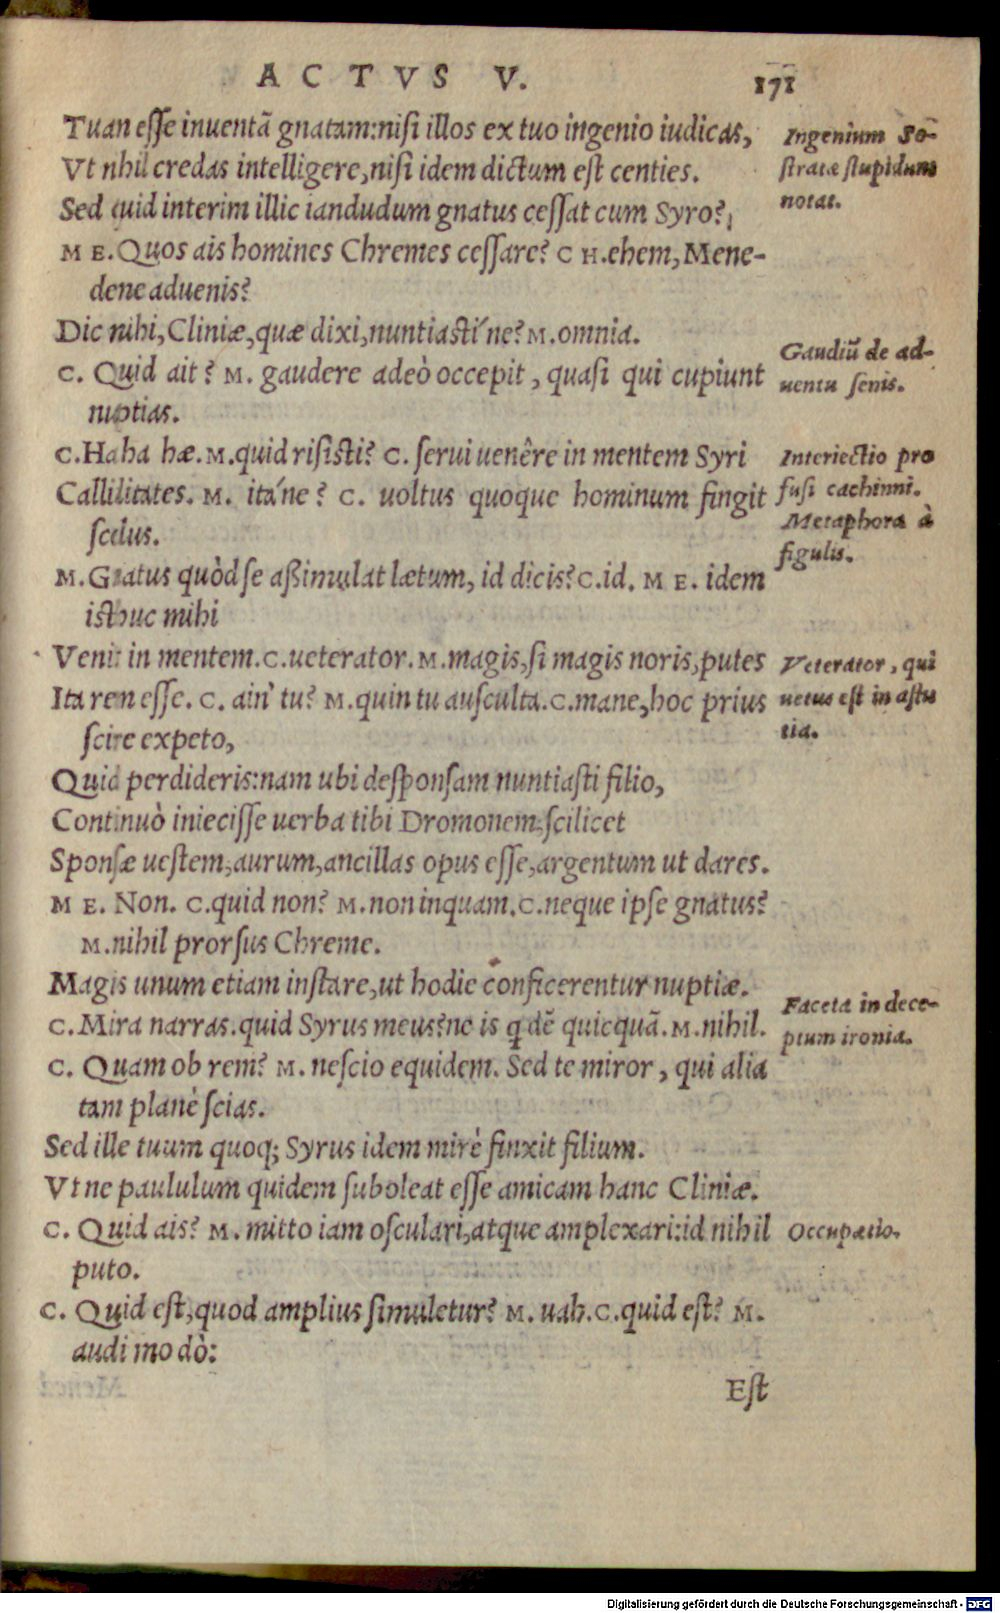 ACTVS V.
171
Tuan esse inuentã gnatam:nisi illos ex tuo ingenio iudicas,
Vt nhil credas intelligere,nisi idem dictum est centies.
Sed quid interim illic iandudum gnatus cessat cum Syro?
ME.Quos ais homines Chremes cessare? CH.ehem,Mene-
deme aduenis?
Dic mihi,Cliniæ,quæ dixi,nuntiasti´ne?M.omnia.
C. Quid ait? M. gaudere adeò occepit, quasi qui cupiunt
nuptias.
C.Haha hæ.M.quid risisti? C. serui uenêre in mentem Syri
Calliditates. M. ita´ne? C. uoltus quoque hominum fingit
scelus.
M.Gnatus quòd se aßimulat lætum, id dicis?C.id. ME. idem
isthuc mihi
Venit in mentem.C.ueterator.M.magis,si magis noris,putes
Ita rem esse. C. ain' tu? M.quin tu ausculta.C.mane,hoc prius
scire expeto,
Quid perdideris:nam ubi desponsam nuntiasti filio,
Continuò iniecisse uerba tibi Dromonem,scilicet
Sponsæ uestem,aurum,ancillas opus esse,argentum ut dares.
ME. Non. C.quid non? M.non inquam.C.neque ipse gnatus?
M.nihil prorsus Chreme.
Magis unum etiam instare,ut hodie conficerentur nuptiæ.
C.Mira narras.quid Syrus meus?ne is qdẽ quicquã.M.nihil.
C. Quam ob rem? M. nescio equidem. Sed te miror, qui alia
tam planè scias.
Sed ille tuum quoq; Syrus idem mirè finxit filium.
Vt ne paululum quidem suboleat esse amicam hanc Cliniæ.
C. Quid ais? M. mitto iam osculari,atque amplexari:id nihil
puto.
C. Quid est,quod amplius simuletur? M. uah.C.quid est? M.
audi modò:
Est
Ingenium So-
stratæ stupidum
notat.
Gaudiũ de ad-
uentu senis.
Interiectio pro
fusi cachinni.
Metaphora à
figulis.
Veterator, qui
uetus est in astu
tia.
Faceta in dece-
ptum ironia.
Occupatio.
Digitalisierung gefördert durch die Deutsche Forschungsgemeinschaft - DFG